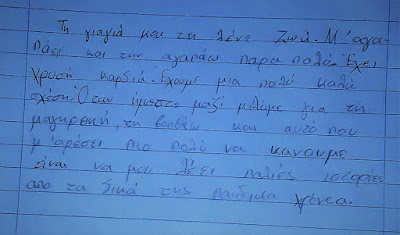 Τη γιαγιά μου τη λένε Ζωή. Μ'αγα
πάει και την αγαπάω παρα πολύ. Έχει
χρυσή καρδιά. Έχουμε μια πολύ καλή
σχέση. Όταν ήμαστε μαζί μιλάμε για τη
μαγηρεική, τη βοηθάω και αυτό που
μ'αρέσει πιο πολύ να κανουμε
είναι να μου λέει παλιές ιστορίες
απο τα δικά της παιδικα χρόνια.